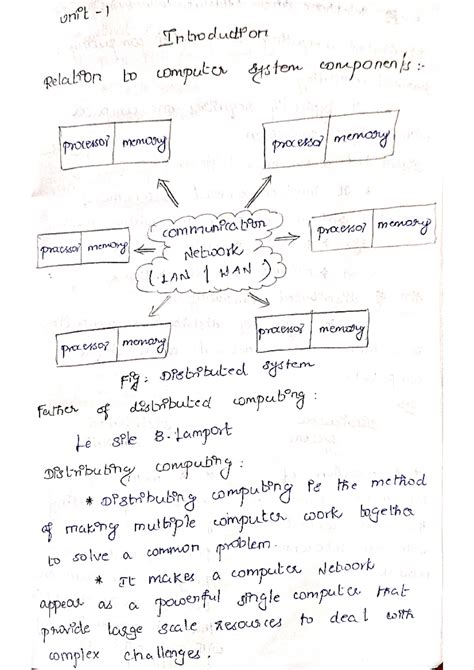 Unit - 1
Introduction
Relation to computer system components :-
processor memory
processor memory
communication
Network
(LAN / WAN)
processor memory
processor memory
processor memory
processor memory
Fig: Distributed system
Father of distributed computing :
Le sile B. Lamport
Distributing computing :
* Distributing computing is the method
of making multiple computer work together
to solve a common problem.
* It makes a computer Network
appear as a powerful single computer that
provide large scale resources to deal with
complex challenges.